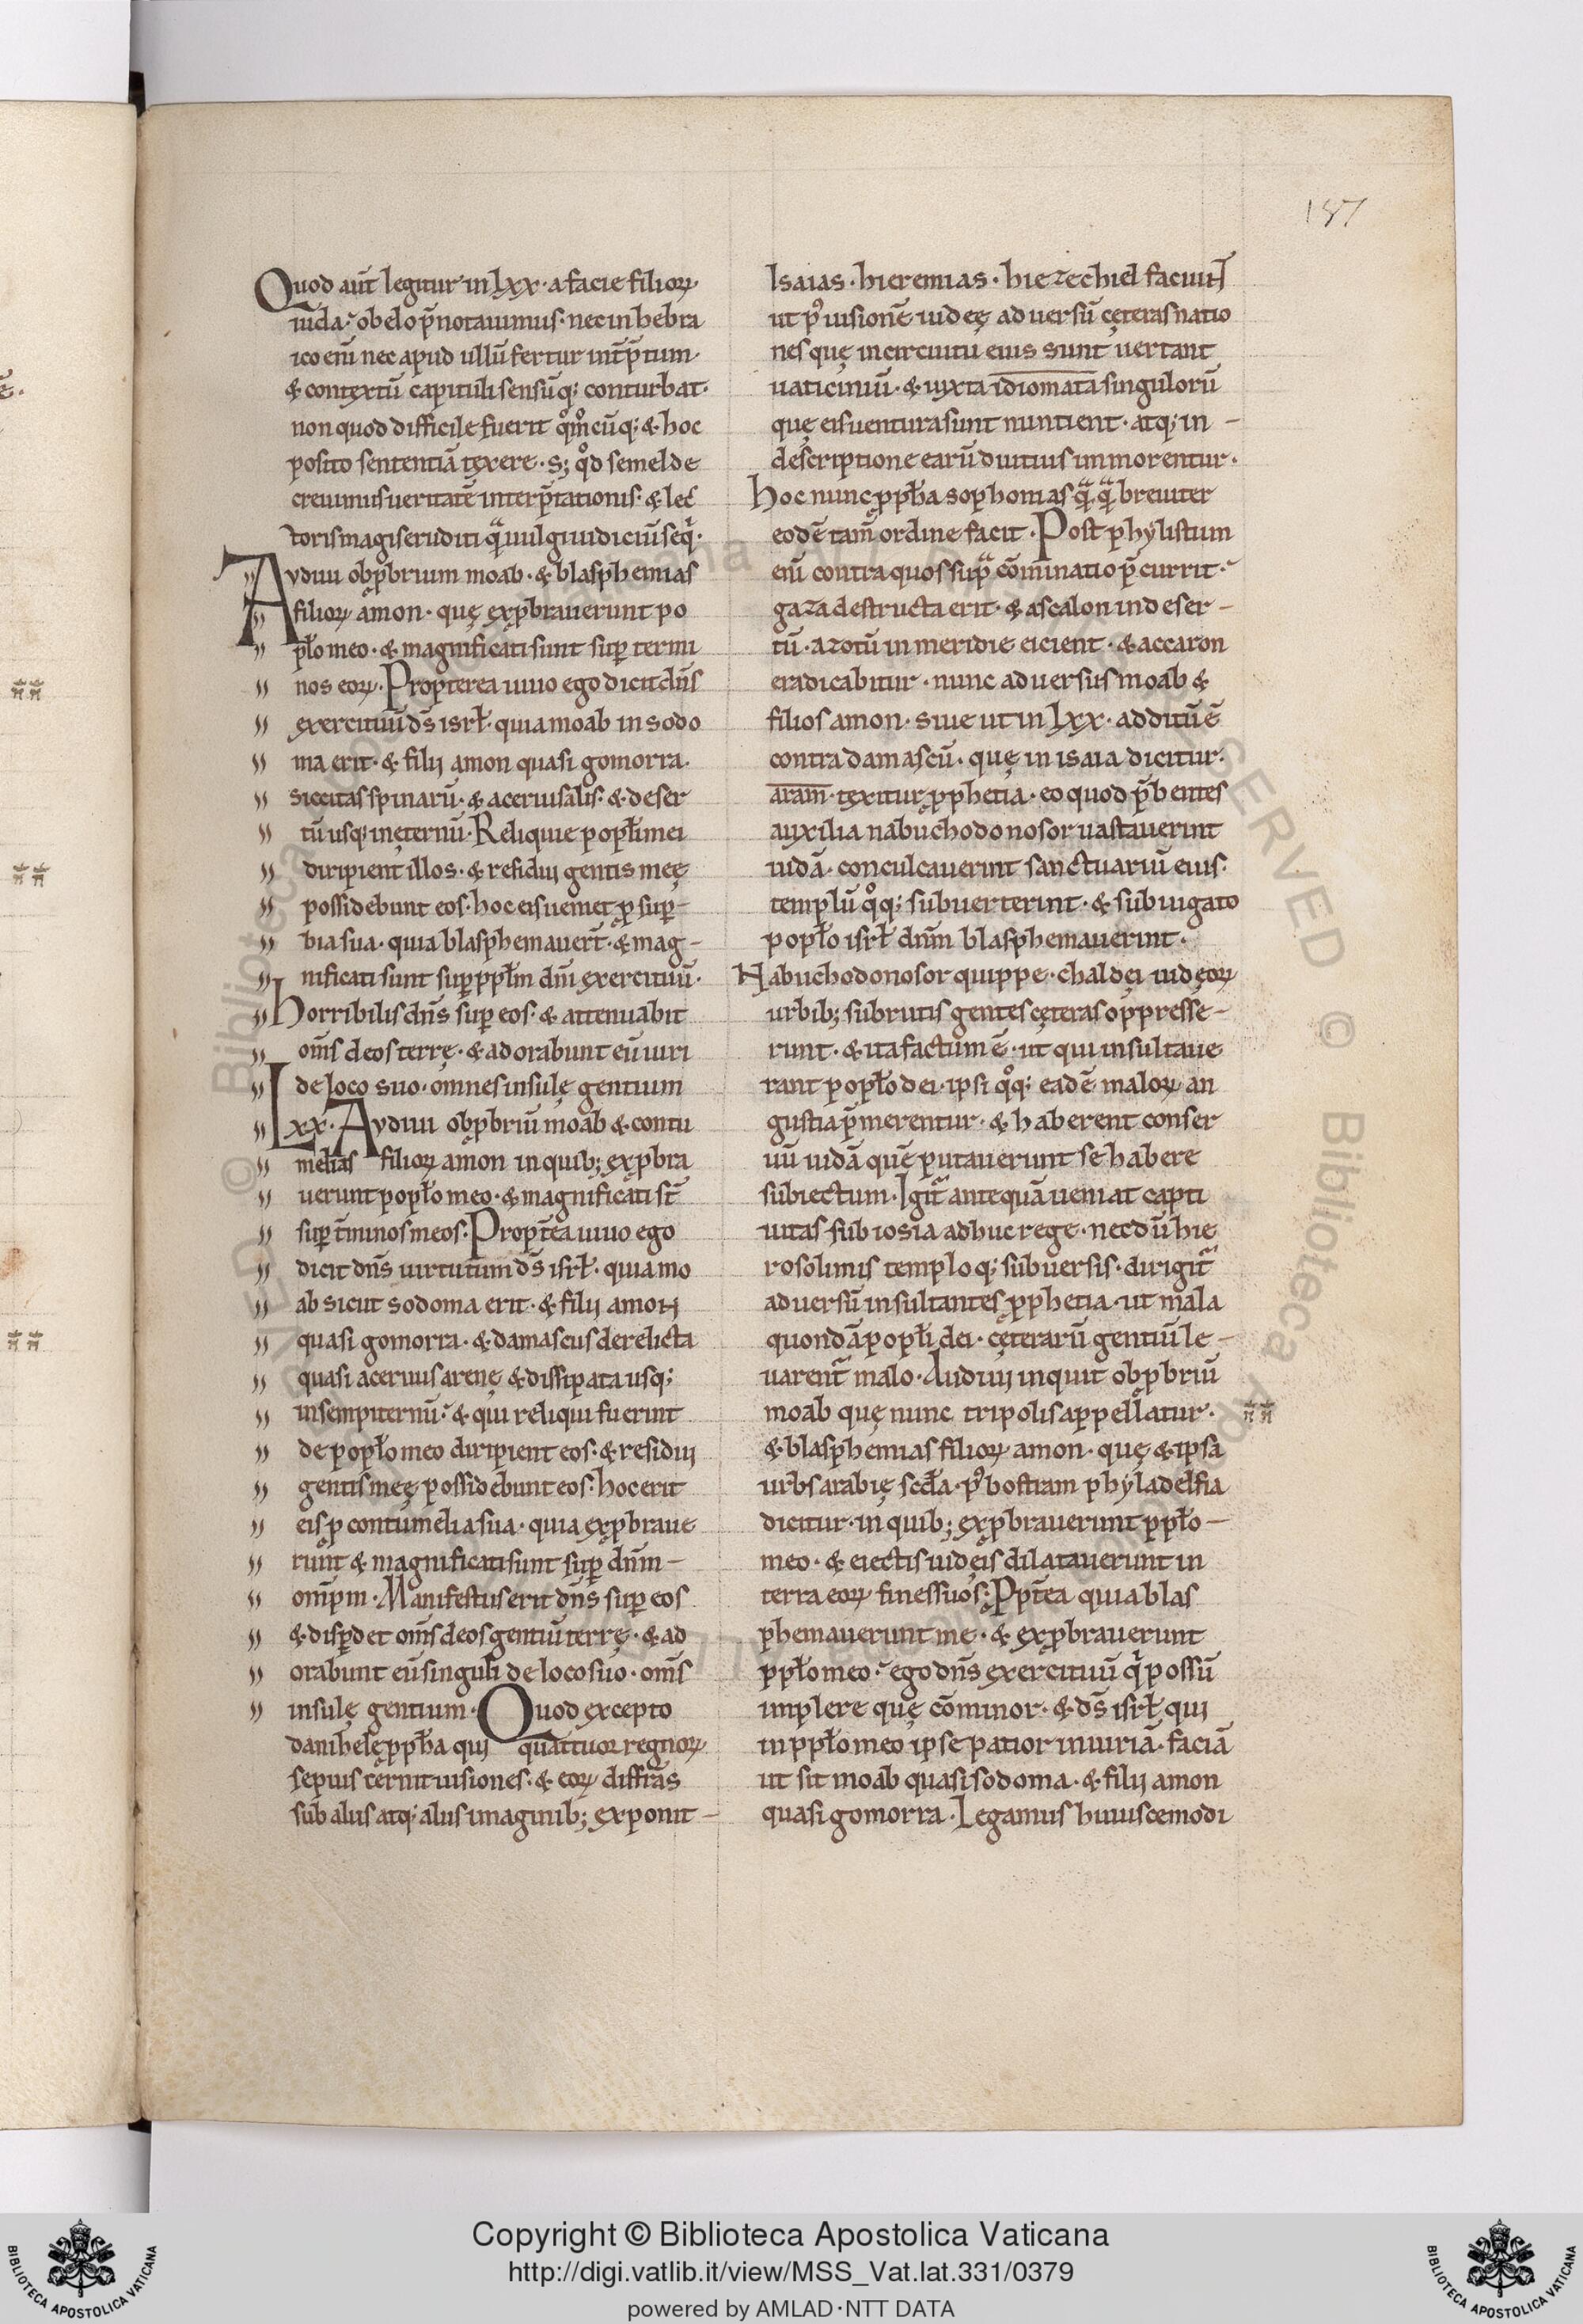 187
Quod aut̄ legitur in lxx· a facie filioꝝ·
iuda· obelo p̄notauimus· nec in hebra
ico eni̅ nec apud ullū fertur int̄p̄tum·
& contextū capituli sensūq; conturbat·
non quod difficile fuerit qͦm̊cūq; & hoc
posito sententiā texere· s; qͦd semel de
creuimus ueritatē interp̄tationis· & lec
toris magis eruditi quā uulgi iudiciū seqͥ·
Avdiui obꝓbrium moab· & blasphemias
filioꝝ amon· quę exꝓbrauerunt po
pło meo· & magnificati sunt suꝑ termi
nos eoꝝ· Propterea uiuo ego dicit dn̄s
exercituū ds̄ isrł· quia moab in sodo
ma erit· & filij amon quasi gomorra·
siccitas spinarū· & acerui salis· & deser
tū usq; in ęternū· Reliquie popłi mei
diripient illos· & residui gentis meę
possidebunt eos· hoc eis ueniet ꝓ suꝑ
bia sua· quia blasphemauer̄t· & mag-
nificati sunt suꝑ ppłm dn̄i exercituū·
horribilis dn̄s suꝑ eos· & attenuabit
om̄s deos terrę· & adorabunt eū uiri
de loco suo· omnes insulę gentium
Lxx· Avdiui obꝓbriū moab & contu
melias filioꝝ amon in quib; exꝓbra
uerunt popło meo· & magnificati st̄
suꝑ t̄minos meos· Propt̄ea uiuo ego
dicit dn̄s uirtutum ds̄ isrł· quia mo
ab sicut sodoma erit· & filij amon
quasi gomorra· & damascus derelicta
quasi aceruus arenę & dissipata usq;
in sempiternū· & qui reliqui fuerint
de popło meo diripient eos· & residuj
gentis meę possidebunt eos· hoc erit
eis ꝓ contumelia sua· quia exꝓbraue
runt & magnificati sunt suꝑ dn̄m-
om̄pm· Manifestus erit dn̄s suꝑ eos
& disꝑdet om̄s deos gentiū terrę· & ad
orabunt eū singuli de loco suo· om̄s
insulę gentium· Quod excepto
danihele ꝓpha quj quattuor regnoꝝ
sepius cernit uisiones· & eoꝝ diffr̄as
sub aliis atq; aliis imaginib; exponit-
Isaias· hieremias· hiezechiel faciunt
ut p᷒ uisionē iudeę aduersū cęteras natio
nes quę in circuitu eius sunt uertant
uaticiniū· & iuxta idiomata singulorū
quę eis uentura sunt nuntient· atq; in -
descriptione earū diutius immorentur·
hoc nunc ꝓpha sophonias qͣqͣ breuiter
eodē tam̄ ordine facit· Post phylistum
eni̅ contra quos supͣ cōminatio p̄currit·
gaza destructa erit· & ascalon in deser-
tū· azotū in meridie eicient· & accaron
eradicabitur· nunc aduersus moab &
filios amon· siue ut in lxx· additū ē
contra damascū· quę in isaia dicitur·
aram· texitur ꝓphetia· eo quod p̄bentes
auxilia nabuchodonosor uastauerint
iudā· conculcauerint sanctuariū eius·
templū qͦq; subuerterint· & subiugato
popło isrł dn̄m blasphemauerint·
Nabuchodonosor quippe· chaldęi iudęoꝝ
urbib; subrutis gentes cęteras oppresse-
runt· & ita factum ē· ut qui insultaue
rant popło dei· ipsi qͦq; eadē maloꝝ an
gustia p̄merentur· & haberent conser
uū iudā quē putauerunt se habere
subiectum· Igit᷑ antequā ueniat capti
uitas sub iosia adhuc rege· necdū hie
rosolimis temploq; subuersis· dirigit᷑
aduersū insultantes ꝓphetia· ut mala
quondā popłi dei· cęterarū gentiū le-
uarent᷑ malo· Audiuj inquit obꝓbriū
moab quę nunc tripolis appellatur·
& blasphemias filioꝝ amon· quę & ipsa
urbs arabię scđa· p᷒ bostram phyladelfia
dicitur· in quib; exꝓbrauerunt ppło-
meo· & eiectis iudęis dilatauerunt in
terra eoꝝ fines suos· Ꝓpt̄ea quia blas
phemauerunt me· & exꝓbrauerunt
ppło meo· ego dn̄s exercituū qͥ possū
implere quę cōminor· & ds̄ isrł quj
in ppło meo ipse patior iniuriā· faciā
ut sit moab quasi sodoma· & filij amon
quasi gomorra· Legamus huiuscemodi
Copyright © Biblioteca Apostolica Vaticana
http://digi.vatlib.it/view/MSS_Vat.lat.331/0379
powered by AMLAD·NTT DATA
BIBLIOTECA APOSTOLICA VATICANA
BIBLIOTECA APOSTOLICA VATICANA